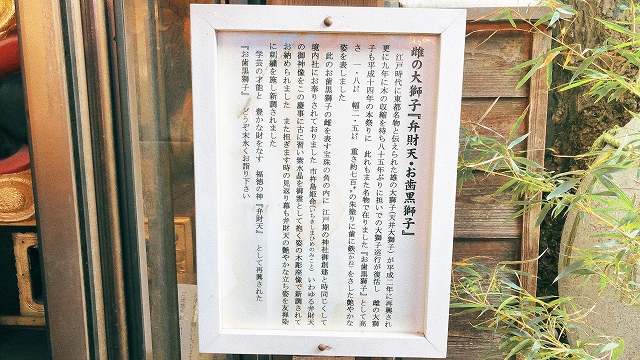 雌の大獅子『弁財天・お歯黒獅子』
江戸時代に東都名物と伝えられた雄の大獅子(天井大獅子)が平成二年に再興され
更に九年に木の収縮を待ち八十五年ぶりに担いでの大獅子巡行が復活し 雌の大獅
子も平成十四年の本祭りに 此れもまた名物で在りました『お歯黒獅子』として高
さ 一・八㍍ 幅二・五㍍ 重さ約七百㌔の朱塗りに歯に鉄(かね)をさした艶やかな
姿を表しました
此のお歯黒獅子の雌を表す宝珠の角の内に 江戸期の神社御創建と時同じくして
境内社にお奉りされておりました 市杵島姫命(いちきしまひめのみこと) いわゆる弁財天
の御神像をこの慶事に古に習い紫水晶を御霊として抱く姿の木彫座像で新調されて
お納められました また担ぎます時の見返り幕も弁財天の艶やかな立ち姿を友禅染
に刺繍を施し新調されました
学芸の才能と 豊かな財をなす 福徳の神『弁財天』 として再興された
『お歯黒獅子』 どうぞ末永くお詣り下さい